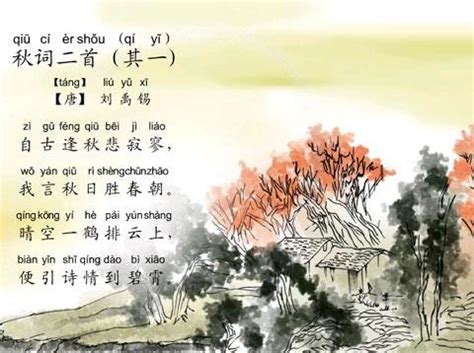 qiū cí èr shǒu (qí yī)
秋词二首（其一）
[táng] liú yǔ xī
【唐】 刘禹锡
zì gǔ féng qiū bēi jì liáo
自古逢秋悲寂寥，
wǒ yán qiū rì shèng chūn zhāo
我言秋日胜春朝。
qíng kōng yí hè pái yún shàng
晴空一鹤排云上，
biàn yǐn shī qíng dào bì xiāo
便引诗情到碧霄。